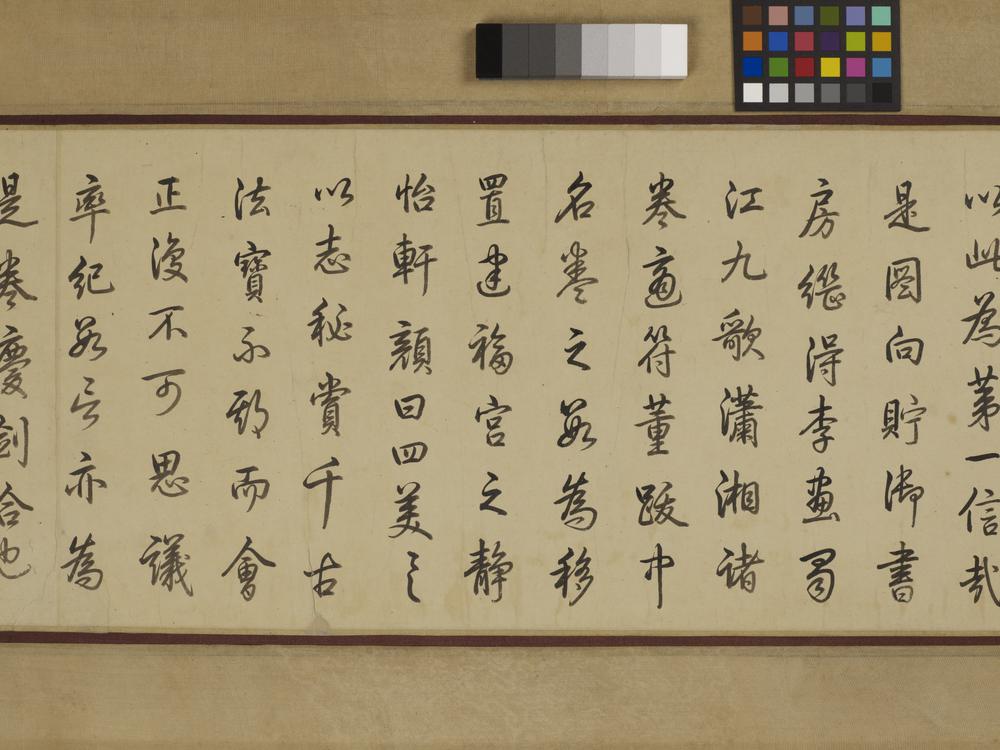 以此為第一信哉
是圖向貯御書
房繼得李畫蜀
江九歌瀟湘諸
卷適符董跋中
名卷之數為移
置建福宮之靜
怡軒顏曰四美具
以志秘賞千古
法寶不期而會
正復不可思議
率紀數言亦為
是卷慶劍合也